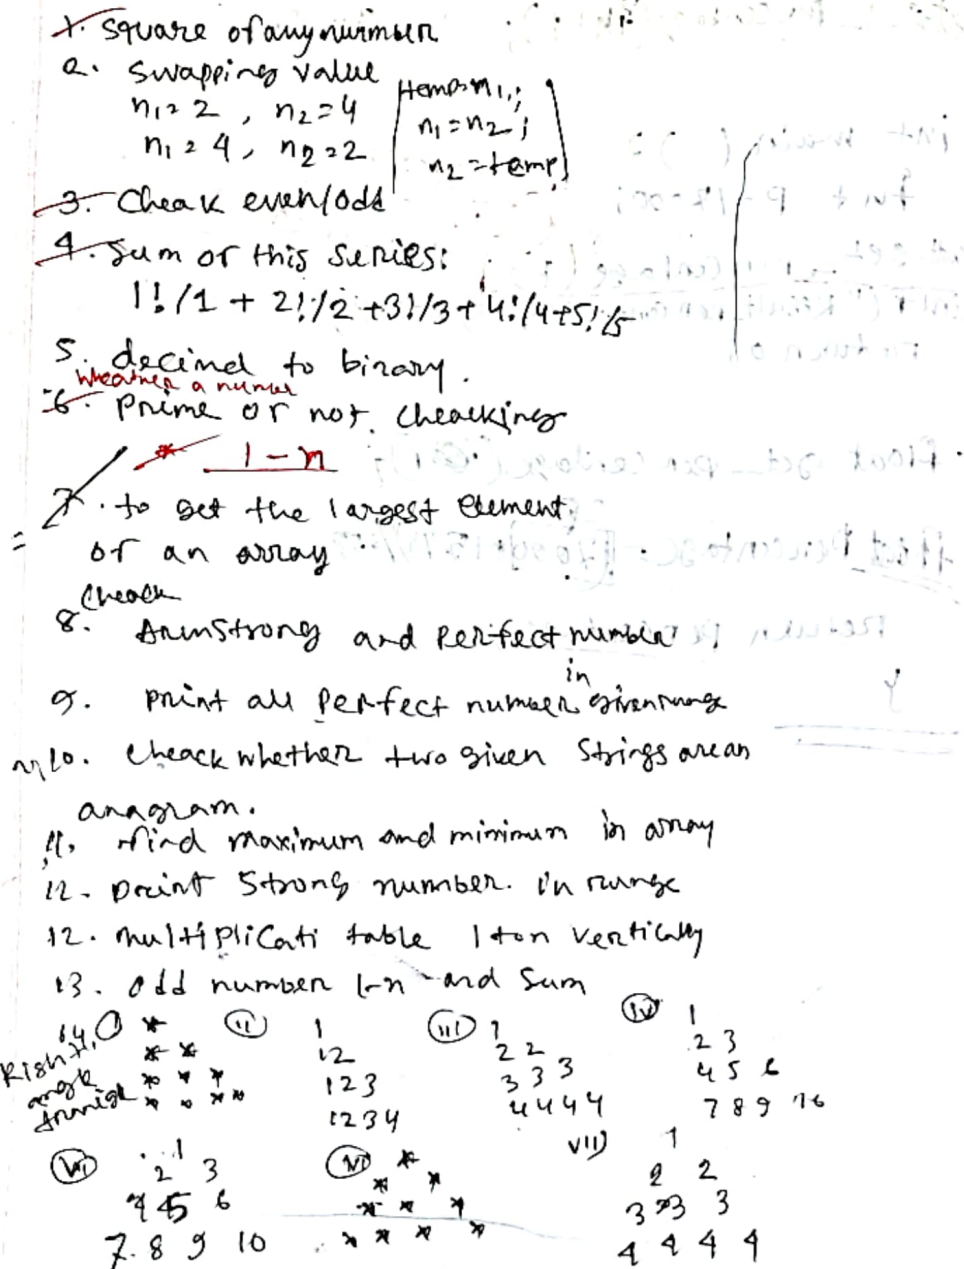 1. square of any nurmbun
2. swapping value
n1 = 2 , n2 = 4
n1 = 4 , n2 = 2
temp=n1;
n1 = n2 ;
n2 = temp;
3. Cheak even/odd
4. Sum of this series:
1!/1 + 2!/2 +3!/3 + 4!/4+5!/5
5. decimal to binary.
wheather a number
6. Prime or not cheacking
* 1 - n
7. to get the largest element
of an array
8. Cheack
Armstrong and Perfect number
9. print all Perfect number in given range
10. Cheack whether two given Strings are an
anagram.
11. find maximum and minimum in array
12. print Strong number. in range
12. multiplicati table 1 to n vertically
13. odd number 1-n and sum
14
Right
angle
i *
* *
* * *
* * * *
ii 1
12
123
1234
iii 1
2 2
3 3 3
4 4 4 4
iv 1
2 3
4 5 6
7 8 9 10
v 1
2 3
4 5 6
7 8 9 10
vi *
* *
* * *
* * * *
vii) 1
2 2
3 3 3
4 4 4 4